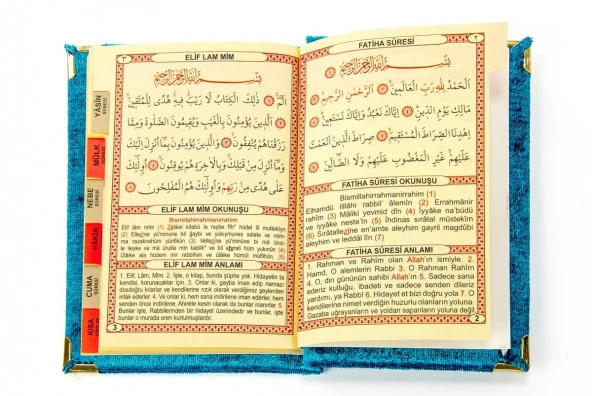 ٢
FATİHA SÛRESİ
بِسْمِ اللّٰهِ الرَّحْمٰنِ الرَّحِيمِ
اَلْحَمْدُ لِلّٰهِ رَبِّ الْعَالَمِينَ اَلرَّحْمٰنِ الرَّحِيمِ
مَالِكِ يَوْمِ الدِّينِ اِيَّاكَ نَعْبُدُ وَاِيَّاكَ نَسْتَعِينُ
اِهْدِنَا الصِّرَاطَ الْمُسْتَقِيمَ صِرَاطَ الَّذِينَ اَنْعَمْتَ
عَلَيْهِمْ غَيْرِ الْمَغْضُوبِ عَلَيْهِمْ وَلَا الضَّالِّينَ
FATİHA SÛRESİ OKUNUŞU
Bismillahirrahmanirrahim (1)
Elhamdü lillâhi rabbil' âlemin (2) Errahmânir
rahîm (3) Mâliki yevmid dîn (4) İyyâke na'büdü
ve iyyâke neste'în (5) İhdinas sırâtal müstekîm
(6) Sırâtallezîne en'amte aleyhim gayril magdûbi
aleyhim ve leddâl lîn (7)
FATİHA SÛRESİ ANLAMI
1. Rahman ve Rahîm olan Allah'ın ismiyle. 2.
Hamd, O alemlerin Rabbi 3. O Rahman Rahim
4. O, din gününün sahibi Allah'ın 5. Sadece sana
ederiz kulluğu, ibadeti ve sadece senden dileriz
yardımı, ya Rabb! 6. Hidayet et bizi doğru yola 7. O
kendilerine nimet verdiğin huzurlu olanların yoluna
Gazaba uğrayanların ve yoldan sapanların yoluna değil.
2
٣
ELİF LAM MİM
بِسْمِ اللّٰهِ الرَّحْمٰنِ الرَّحِيمِ
الٓمٓ ذٰلِكَ الْكِتَابُ لَا رَيْبَ فِيهِ هُدًى لِلْمُتَّقِينَ
اَلَّذِينَ يُؤْمِنُونَ بِالْغَيْبِ وَيُقِيمُونَ الصَّلٰوةَ وَمِمَّا
رَزَقْنَاهُمْ يُنْفِقُونَ وَالَّذِينَ يُؤْمِنُونَ بِمَا اُنْزِلَ اِلَيْكَ
وَمَا اُنْزِلَ مِنْ قَبْلِكَ وَبِالْاٰخِرَةِ هُمْ يُوقِنُونَ اُولٰئِكَ
عَلٰى هُدًى مِنْ رَبِّهِمْ وَاُولٰئِكَ هُمُ الْمُفْلِحُونَ
ELİF LAM MİM OKUNUŞU
Bismillahirrahmanirrahim
Elif lâm mîm (1) Zâlikel kitâbü la raybe fîh' hüdel lil muttekîyn
(2) Ellezîne yü'minune bil ğaybi ve yükıymunes salate ve mim-
ma razaknahüm yünfikûn (3) Vellezîne yü'minune bi mâ ünzi-
le ileyke ve mâ ünzile min kablik' ve bil ahireti hüm yûkınûn (4)
Ülâike ala hüdem mir rabbihim ve ülâike hümül müflihûn. (5)
ELİF LAM MİM ANLAMI
1. Elif, Lâm, Mîm. 2. İşte, o kitap, bunda şüphe yok. Hidayetin ta
kendisi, korunacaklar için. 3. Onlar ki, gayba iman edip namazı
dosdoğru kılarlar ve kendilerine rızık olarak verdiğimiz şeylerden
infak ederler. 4. Ve onlar ki, hem sana indirilene iman ederler, hem
senden önce indirilene. Ahirete kesin olarak da bunlar inanırlar.
5. Bunlar işte, Rabbilerinden bir hidayet üzerindedir ve bunlar, işte
bunlar o murada eren kurtulmuşlardır.
3
YÂSİN
SURESİ
MÜLK
SURESİ
NEBE
SURESİ
VÂKIA
CUMA
SURESİ
KISA